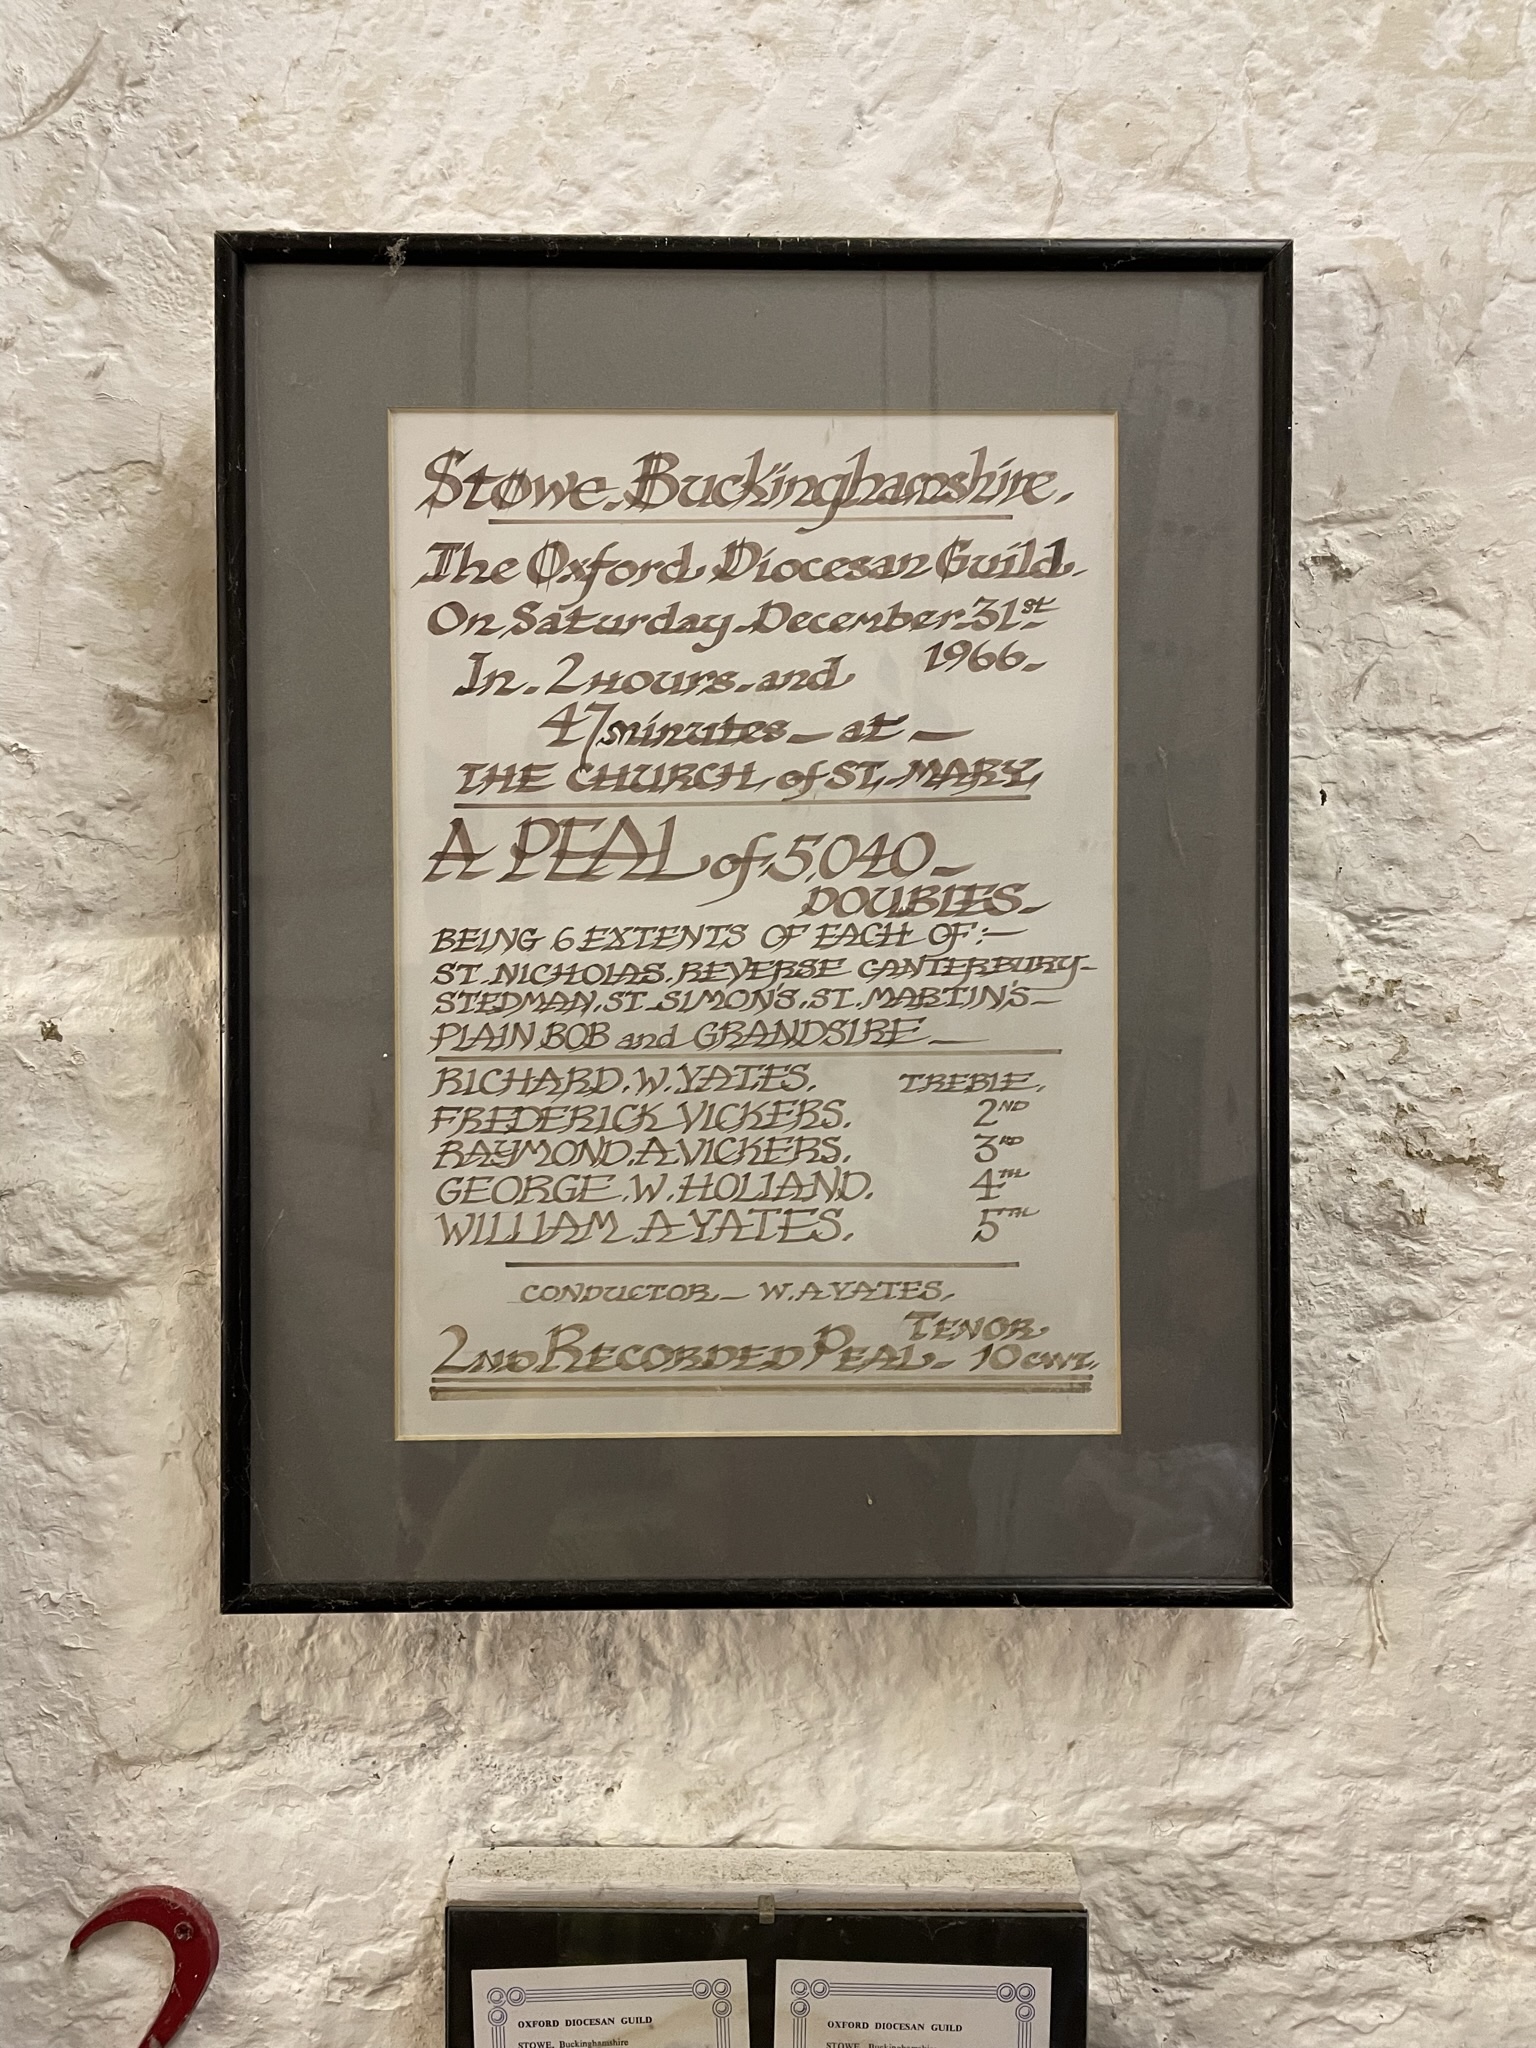 Stowe. Buckinghamshire.
The Oxford Diocesan Guild.
On Saturday - December - 31st -
1966 -
In - 2 Hours - and
47 minutes - at -
THE CHURCH of ST. MARY.
A PEAL of 5,040 -
DOUBLES -
BEING 6 EXTENTS OF EACH OF :-
ST. NICHOLAS. REVERSE CANTERBURY -
STEDMAN. ST. SIMON'S. ST. MARTIN'S -
PLAIN BOB and GRANDSIRE -
RICHARD. W. YATES. TREBLE.
FREDERICK VICKERS. 2ND
RAYMOND. A. VICKERS. 3RD
GEORGE. W. HOLLAND. 4TH
WILLIAM. A. YATES. 5TH
CONDUCTOR - W. A. YATES.
2ND RECORDED PEAL - TENOR 10 cwt.
OXFORD DIOCESAN GUILD
STOWE, Buckinghamshire
OXFORD DIOCESAN GUILD
STOWE, Buckinghamshire